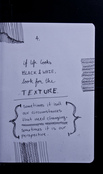 If life looks
BLACK & WHITE,
look for the
TEXTURE.
Sometimes it's not
our circumstances
that need changing.
Sometimes it is our
perspective.